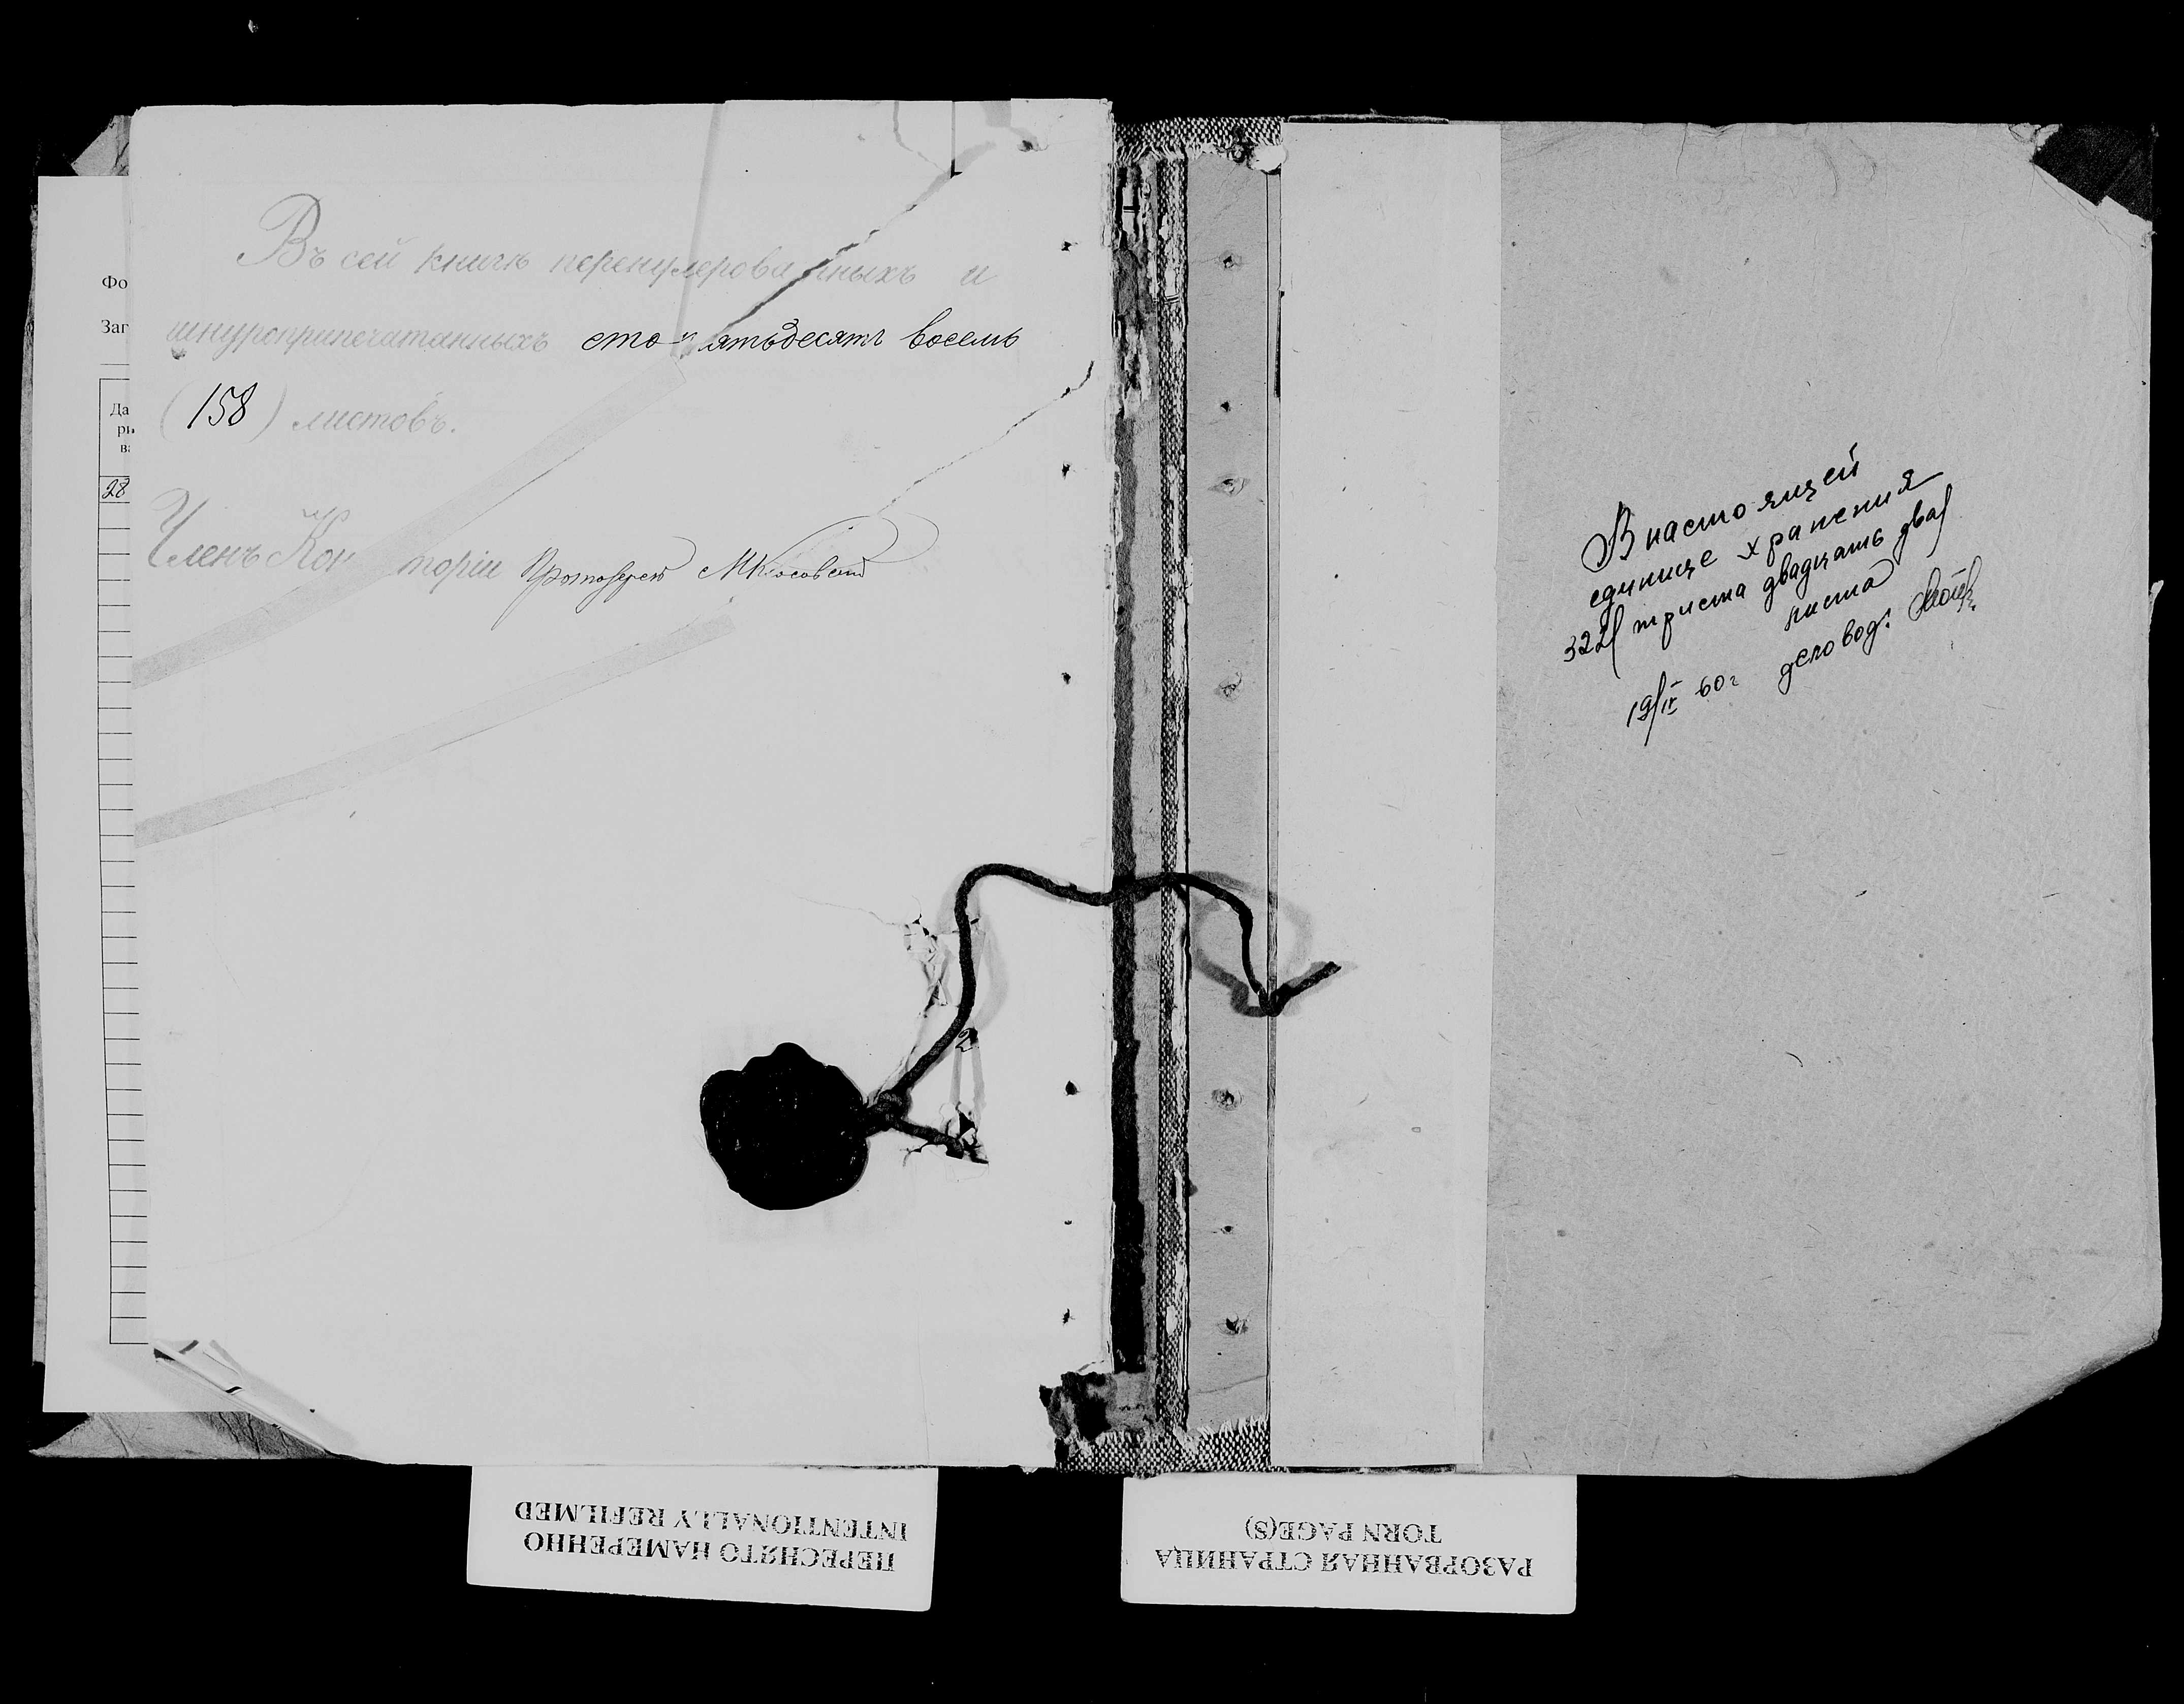 Фо
Заг
Да
ри
ва
28
Въ сей книгѣ перенумерованныхъ и
шнуроприпечатанныхъ сто пятьдесятъ восемь
(158) листовъ.
Членъ Кон торіи Протоіерей
2
В настоящей
единице хранения
322/ триста двадцать два/
листа
19/IV 60 г деловод:
ПЕРЕСНЯТО НАМЕРЕННО
INTENTIONALLY REFILMED
РАЗОРВАННАЯ СТРАНИЦА
TORN PAGE(S)